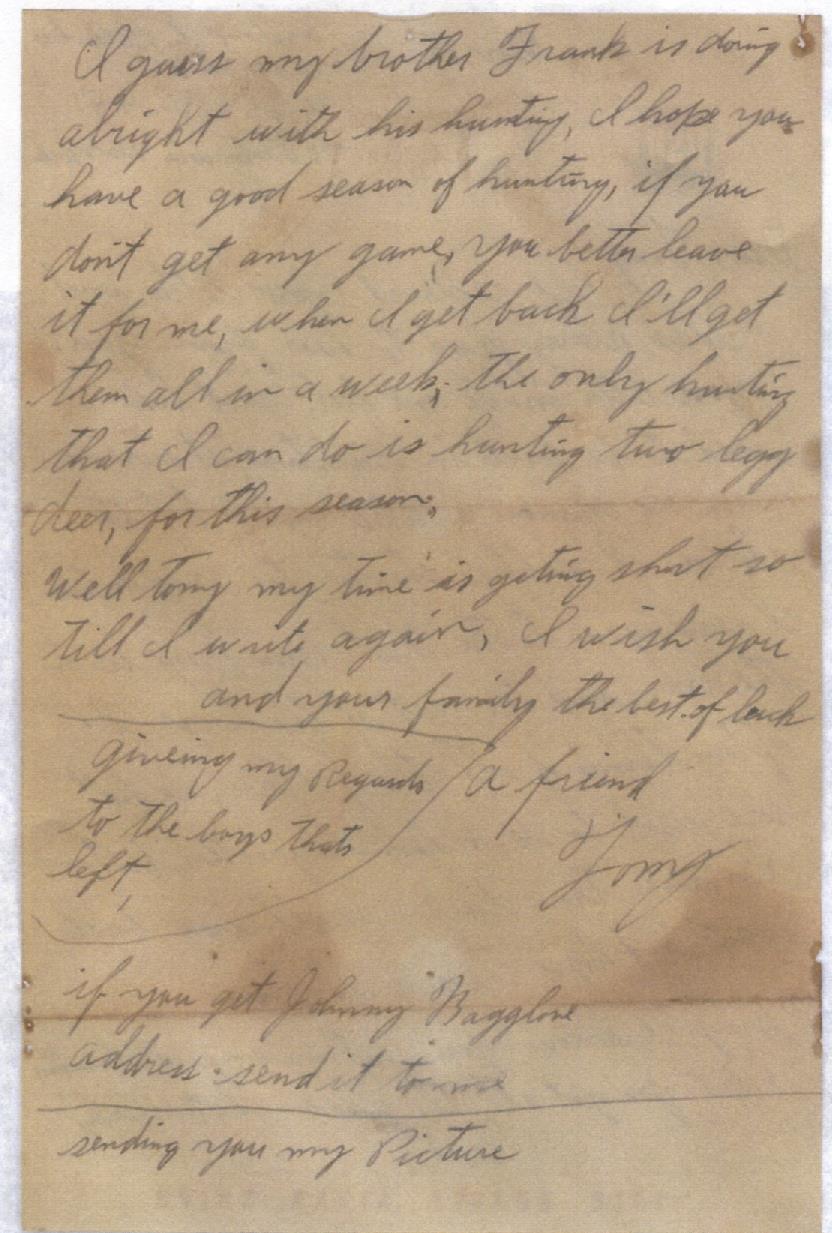 I guess my brother Frank is doing
alright with his hunting, I hope you
have a good season of hunting, if you
don't get any game, you better leave
it for me, when I get back I'll get
them all in a week, the only hunting
that I can do is hunting two legg
deer, for this season,
Well tony my time is geting short so
till I write again, I wish you
and your family the best of luck
giveing my Regards
to the boys thats
left,
a friend
Tony
if you get Johnny Bagglone
address send it to me
sending you my Picture